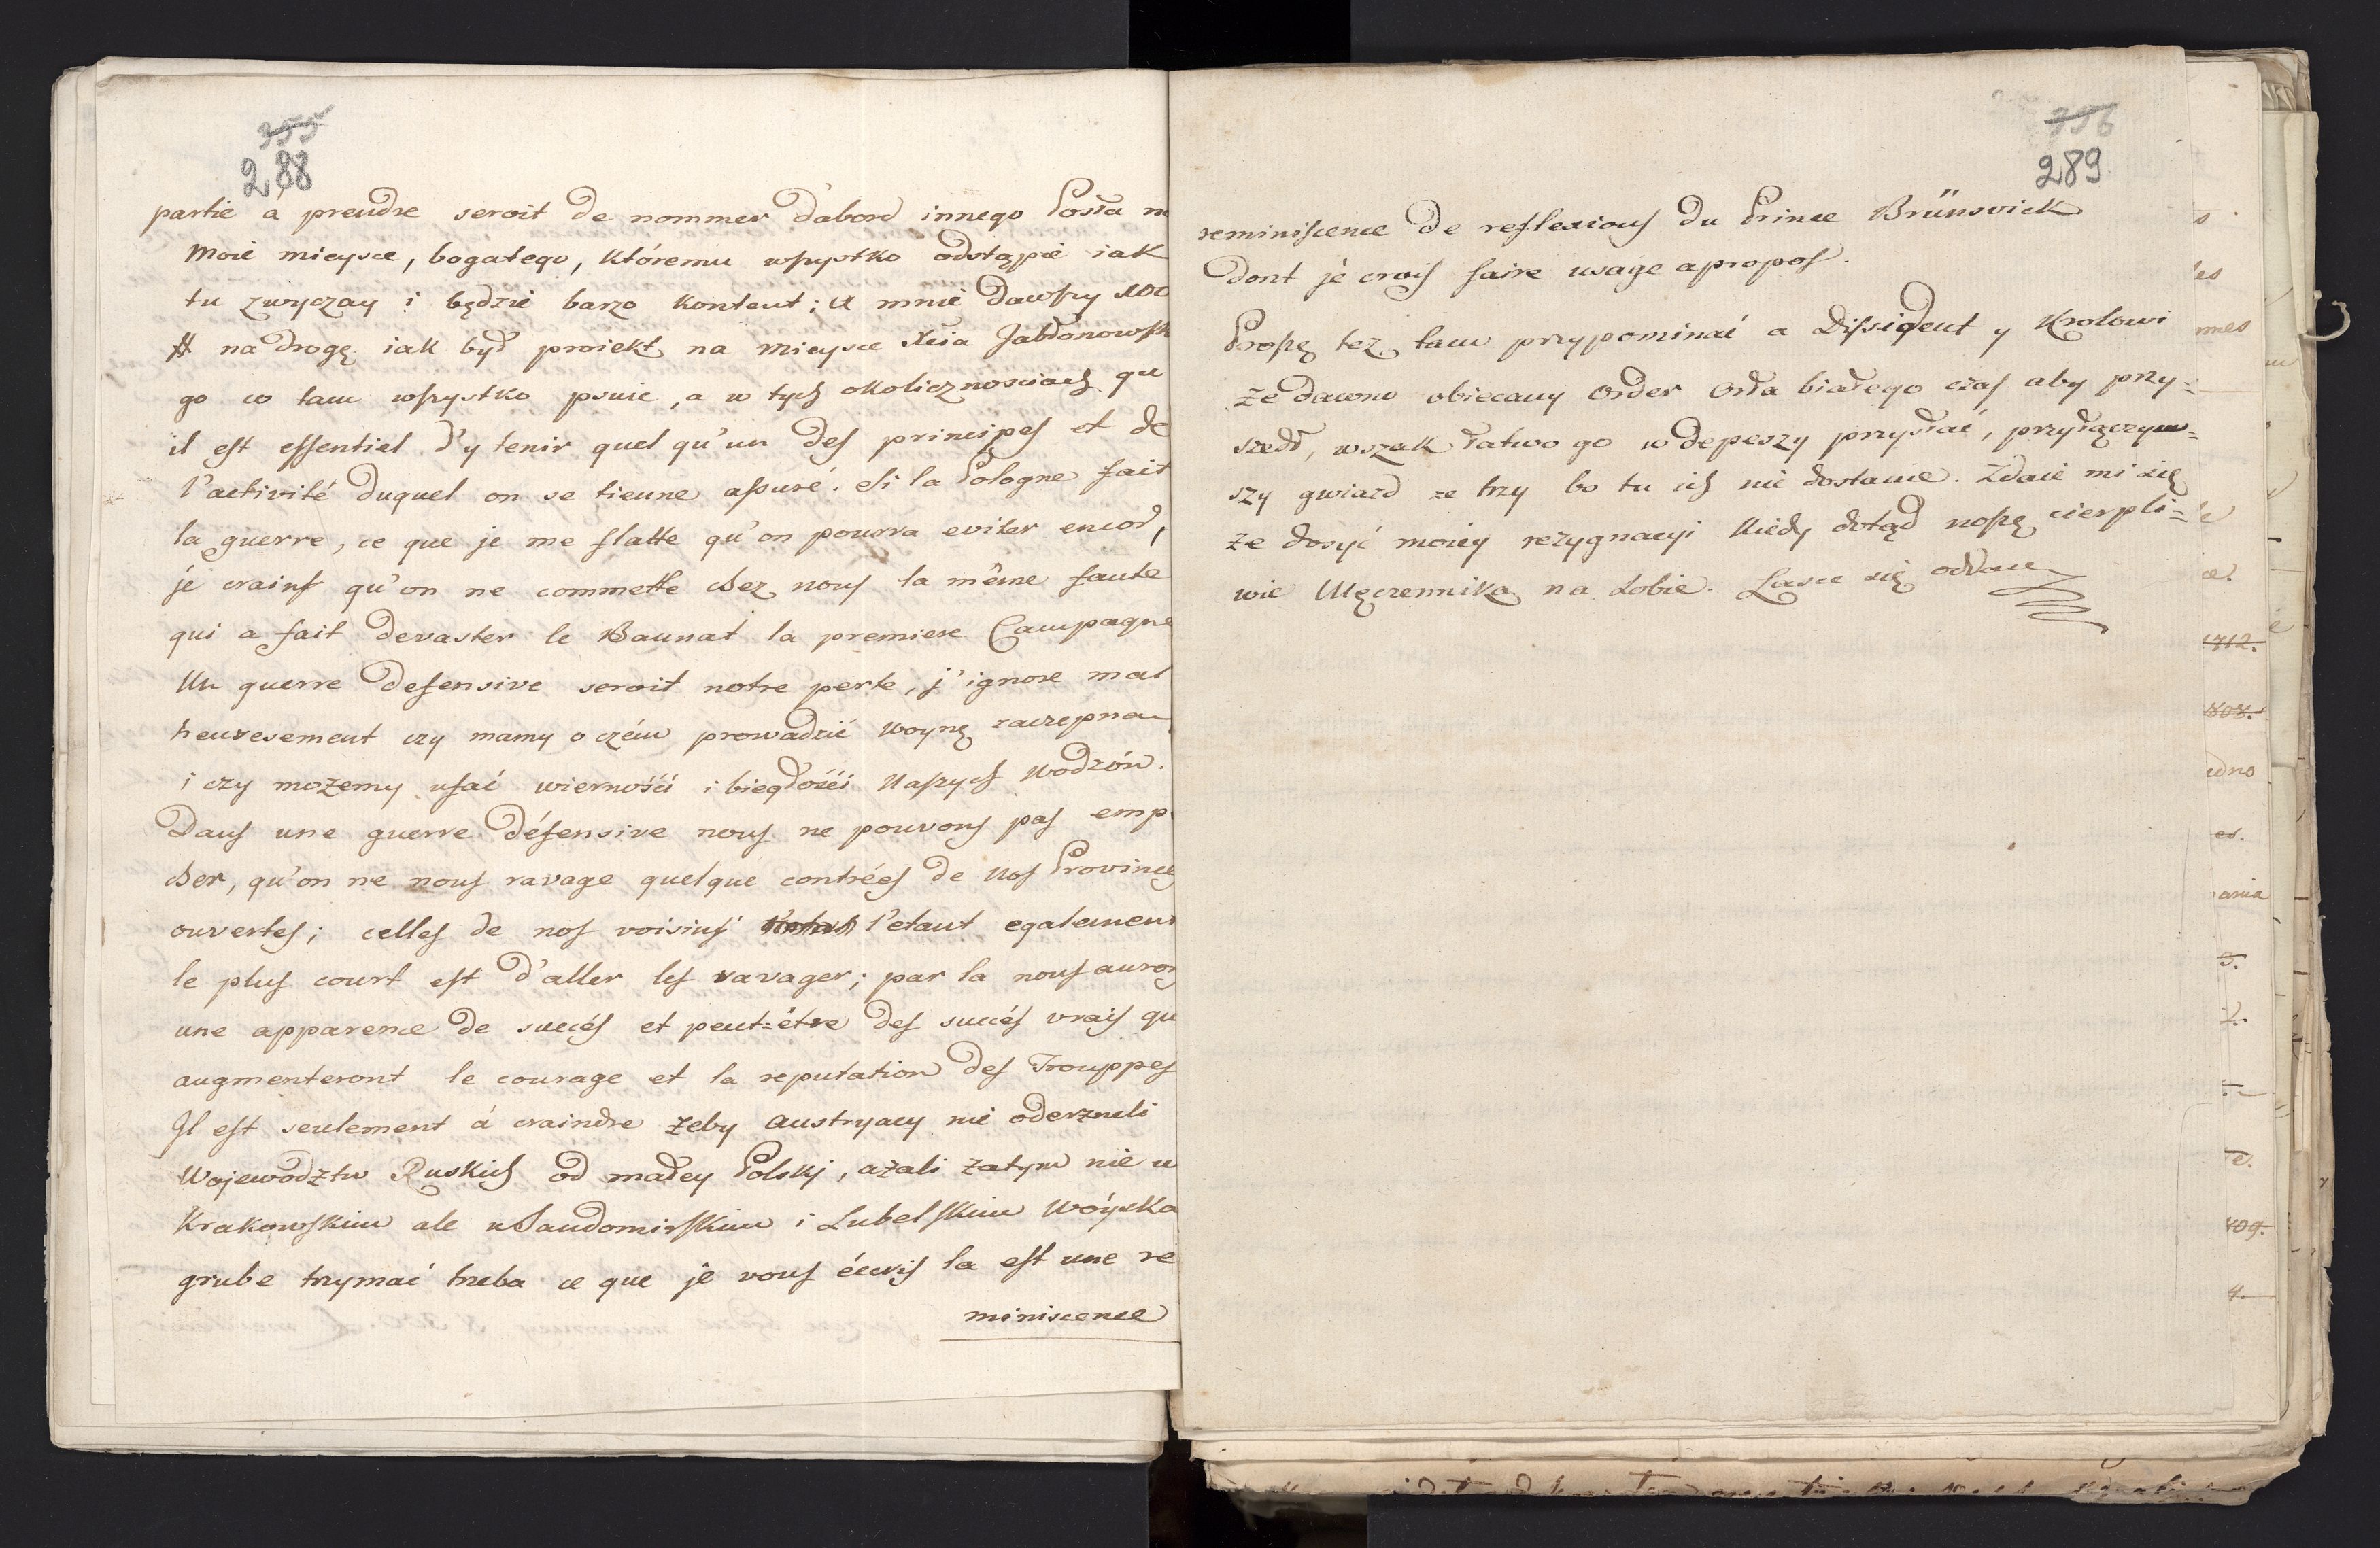 355
288
partie a prendre seroit de nommer d'abord innego Posła n
moie mieysce, bogatego, któremu wszystko odstąpie iak
tu zwyczay i będzie barzo kontent; a mnie dawszy
# na drogę iak był proiekt na mieysce Xcia Jabłonowsk
go co tam wszystko psuie, a w tych okolicznosciach qu
il est essentiel d'y tenir quel qu'un des principes et de
l'activité duquel on se tienne assuré. Si la Pologne fait
la guerre, ce que je me flatte qu'on pourra eviter encor,
je crains qu'on ne commette chez nous la même faute
qui a fait devaster le Bannat la premiere Campagne
Un guerre defensive seroit notre perte, j'ignore mal
heuresement czy mamy o czém prowadzić woynę zaczepna
i czy możemy ufać wiernośći i biegłośći Naszych Wodzów.
Dans une guerre défensive nous ne pouvons pas emp
cher, qu'on ne nous ravage quelque contrées de Nos Provinces
ouvertes; celles de nos voisins l'etant egalement
le plus court est d'aller les ravager; par la nous auron
une apparence de succés et peut=être des succés vrais qu
augmenteront le courage et la reputation des Trouppes
Il est seulement á craindre żeby Austryacy nie oderzneli
Wojewodztw Ruskich od małey Polski, ażali zatym nie w
Krakowskim ale w Sandomirskim i Lubelskim Wóyska
grube trzymać trzeba ce que je vous écris la est une re
miniscence
356
289
reminiscence de reflexions du Prince Brünsvick
dont je crois faire usage apropos.
Proszę tez tam przypominać a Dissident y Krolowi
że dawno obiecany Order Orła białego czas aby przy=
szedł, wszak łatwo go w depeszy przysłać, przyłączyw=
szy gwiazd ze trzy bo tu ich nie dostanie. Zdaie mi się
że dosyć moiey rezygnacyi kiedy dotąd noszę cierpli=
wie Męczennika na sobie. Lasce się oddaie
s
es
mes
1712.
808.
edno
es.
ania
5.
e.
809.
4.